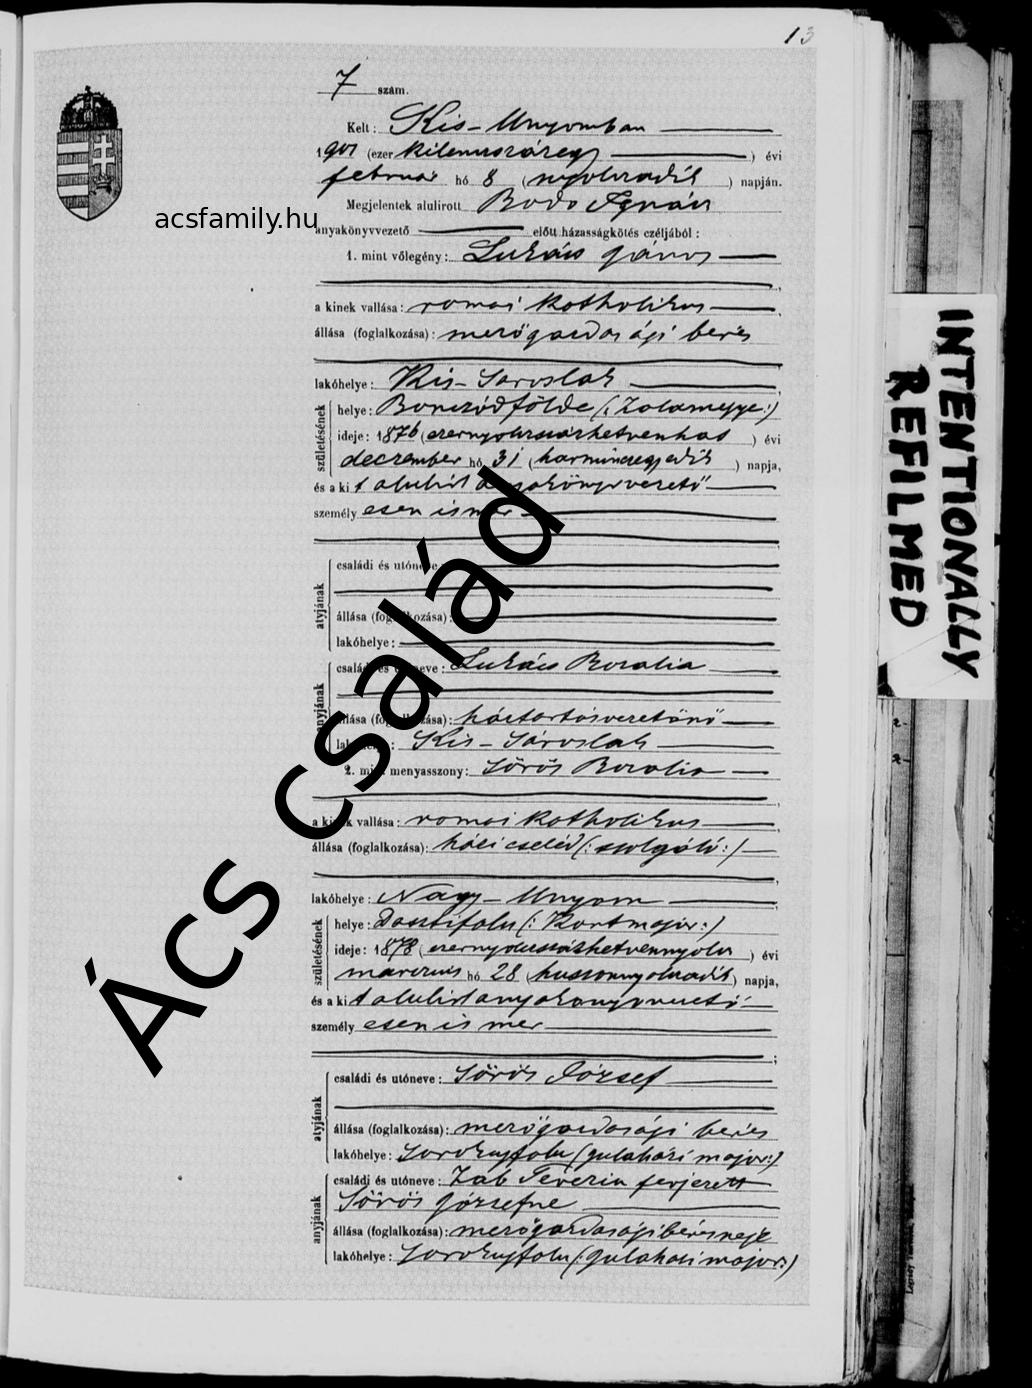 13
7 szám.
Kelt: Kis-Unyomban
1901 (ezer kilenczszázegy) évi
február hó 8 (nyolczadik) napján.
Megjelentek alulirott Bodo Ignácz
anyakönyvvezető előtt házasságkötés czéljából:
acsfamily.hu
1. mint vőlegény: Lukács János
a kinek vallása: romai katholikus
állása (foglalkozása): mezőgazdasági béres
lakóhelye: Kis-Saroslak
születésének
helye: Bonczódfölde (: Zalamegye:)
ideje: 1876 (ezernyolczszázhetvenhat) évi
december hó 31 (harminczegyedik) napja,
és a kit alulirt anyakönyvvezető
személyesen ismer
atyjának
családi és utóneve
állása (foglalkozása):
lakóhelye:
anyjának
családi és utóneve: Lukács Rozalia
állása (foglalkozása): háztartásvezetőnő
lakóhelye: Kis-Sároslak
2. mint menyasszony: Sörös Rozalia
a kinek vallása: romai katholikus
állása (foglalkozása): házi cseléd (: szolgáló:)
lakóhelye: Nagy-Unyom
születésének
helye: Dosztifalu (: major:)
ideje: 1878 (ezernyolczszázhetvennyolcz) évi
marczius hó 28 (huszonnyolczadik) napja,
és a kit alulirt anyakönyvvezető
személyesen ismer
atyjának
családi és utóneve: Sörös József
állása (foglalkozása): mezőgazdasági béres
lakóhelye: Sorokujfalu (gulaházi major:)
anyjának
családi és utóneve: Zab Teverin ferjezett
Sörös Józsefne
állása (foglalkozása): mezőgazdasági béres neje
lakóhelye: Sorokujfalu (: gulahazi major:)
Ács család
INTENTIONALLY
REFILMED